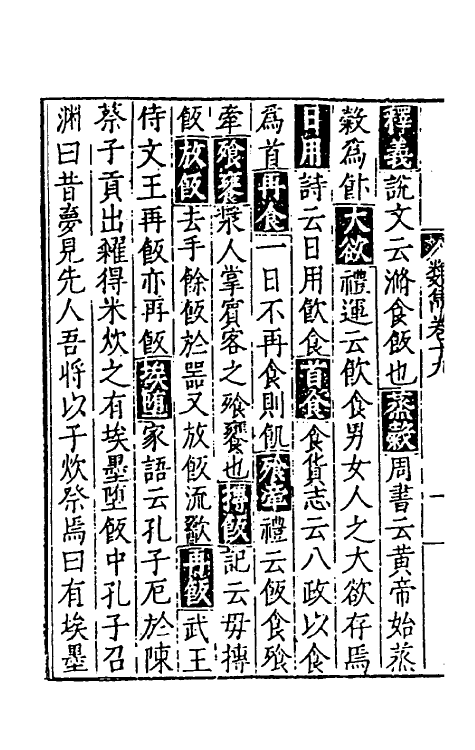 類雋卷十九
一
釋義說文云滫食飯也蒸穀周書云黃帝始蒸
穀爲飰大欲禮運云飲食男女人之大欲存焉
日用詩云日用飲食首食食貨志云八政以食
爲首再食一日不再食則飢飧牽禮云飯食飧
牽飧饔漿人掌賓客之飧饔也摶飯記云毋摶
飯放飯去手餘飯於器又放飯流歠再飯武王
侍文王再飯亦再飯埃墮家語云孔子厄於陳
蔡子貢出糴得米炊之有埃墨墮飯中孔子召
渊曰昔夢見先人吾將以子炊祭焉曰有埃墨